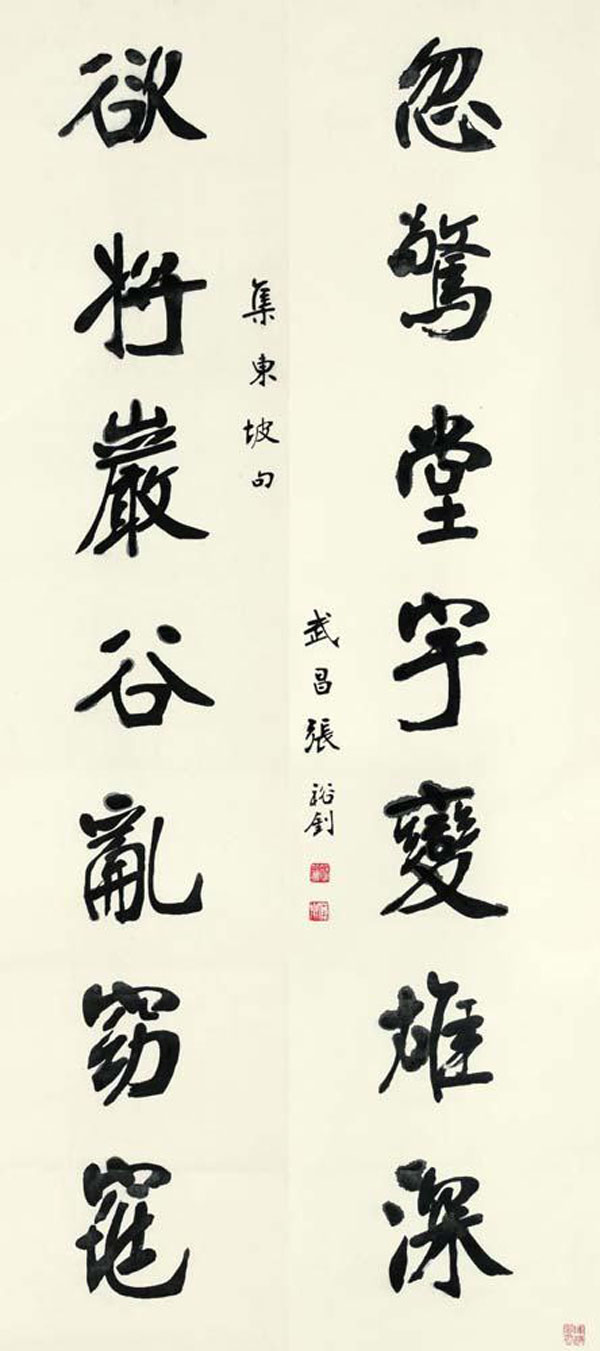 忽驚堂宇變雄深
欲將巖谷亂窈窕
集東坡句
武昌張裕釗